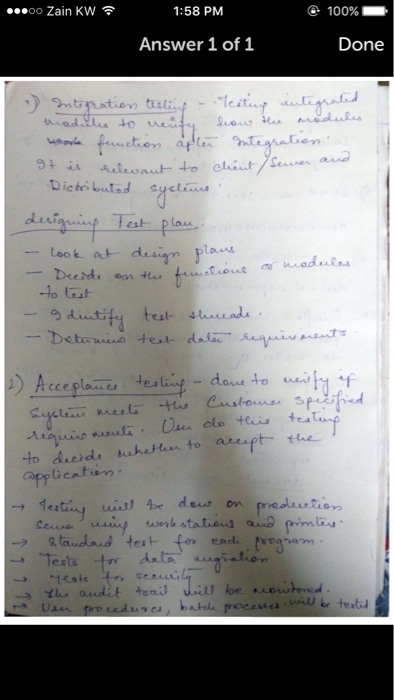 Zain KW 1:58 PM 100%
Answer 1 of 1 Done
1) Integration testing - Testing integrated
modules to verify how the modules
work function after Integration.
It is relevant to client/Server and
Distributed systems.
designing Test plan.
- Look at design plans
- Decide on the functions or modules
to test
- Identify test threads.
- Determine test data requirements.
2) Acceptance testing - done to verify if
System meets the Customer specified
requirements. User do this testing
to decide whether to accept the
application.
→ Testing will be done on production
Server using workstations and printers.
→ Standard test for each program.
→ Tests for data migration
→ Tests for security
→ The audit trail will be monitored.
→ User procedures, batch processes will be tested